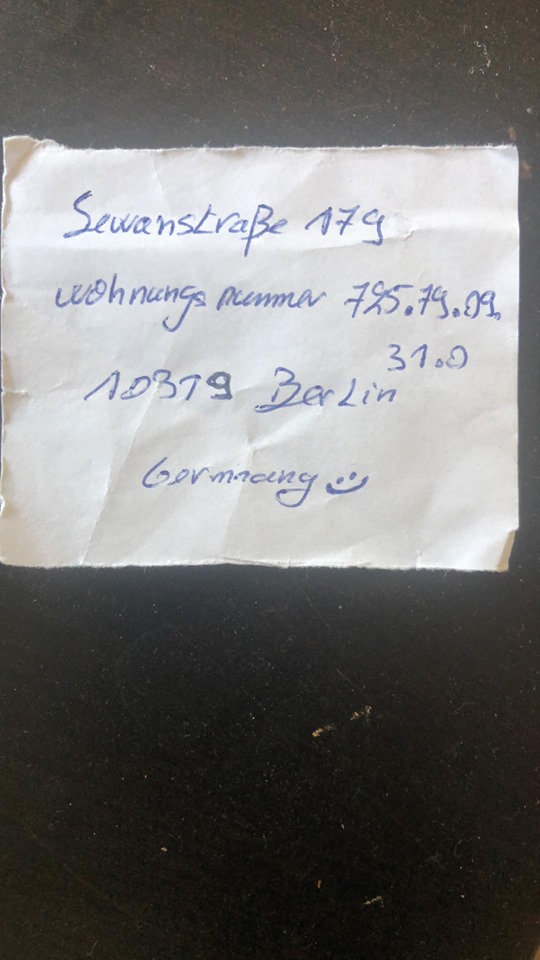 Sewanstraße 179
wohnungsnummer 725.79.09.
31.0
10319 Berlin
Germany